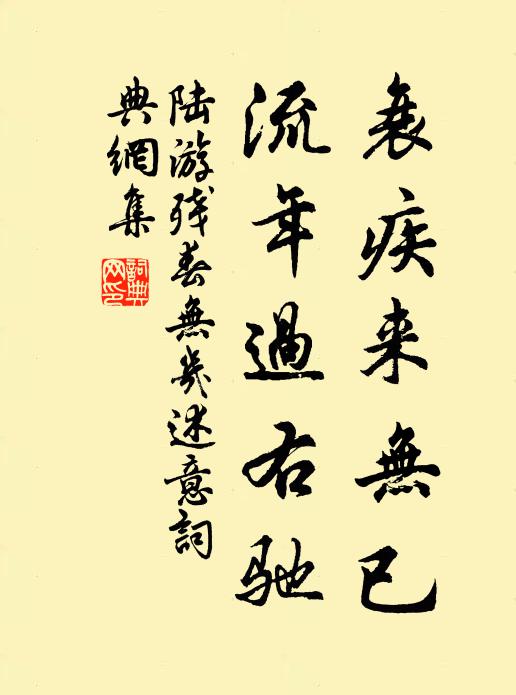 衰疾来無已
流年過右馳
陆游残春無幾述意詞
典網集
詞典
网印